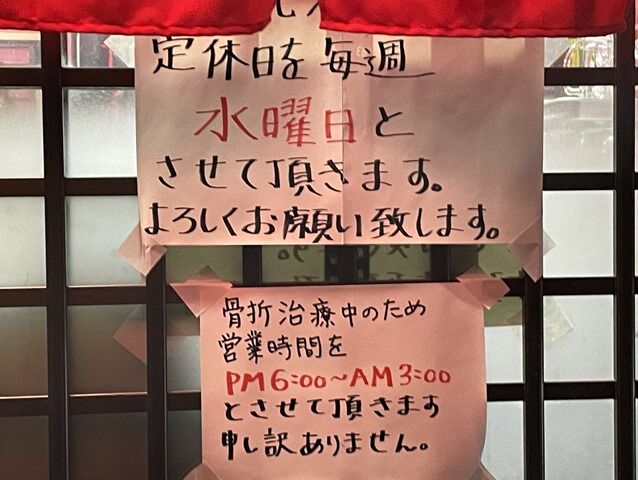 定休日を毎週
水曜日と
させて頂きます。
よろしくお願い致します。
骨折治療中のため
営業時間を
PM6:00～AM3:00
とさせて頂きます
申し訳ありません。